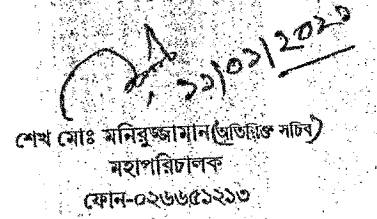 ১১/০১/২০২১
শেখ মোঃ মনিরুজ্জামান (অতিরিক্ত সচিব)
মহাপরিচালক
ফোন-০২৬৬৫১২১৩